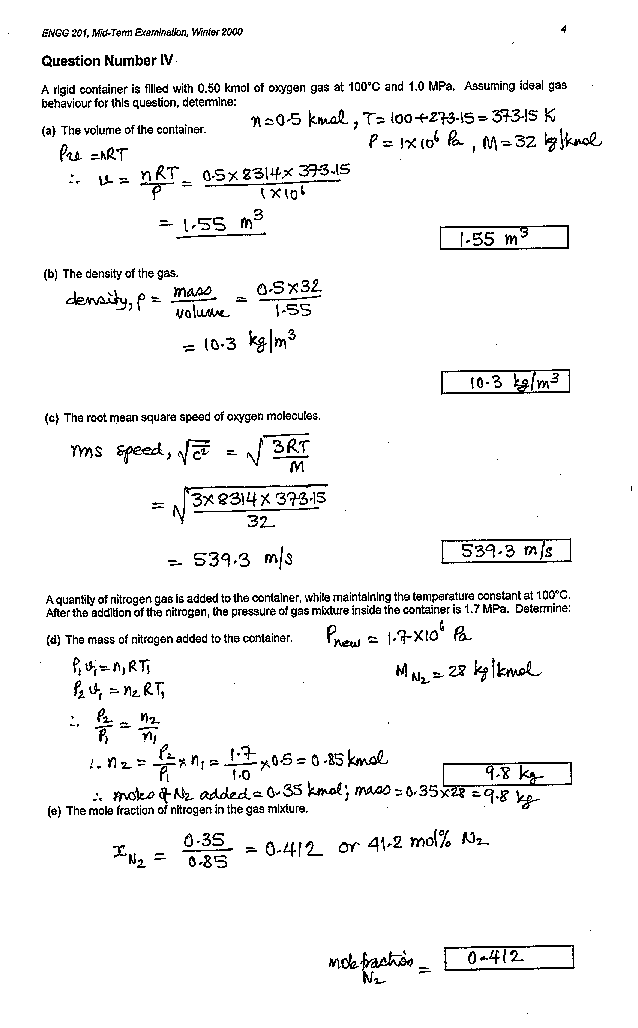 ENGG 201, Mid-Term Examination, Winter 2000
4
Question Number IV
A rigid container is filled with 0.50 kmol of oxygen gas at 100°C and 1.0 MPa. Assuming ideal gas
behaviour for this question, determine:
n = 0.5 kmol, T = 100+273.15 = 373.15 K
(a) The volume of the container.
P = 1×10⁶ Pa, M = 32 kg/kmol
Pv = nRT
∴ v = nRT/P = 0.5 × 8314 × 373.15 / 1×10⁶
= 1.55 m³
1.55 m³
(b) The density of the gas.
density, ρ = mass/volume = 0.5×32/1.55
= 10.3 kg/m³
10.3 kg/m³
(c) The root mean square speed of oxygen molecules.
rms speed, √c² = √3RT/M
= √3×8314×373.15/32
= 539.3 m/s
539.3 m/s
A quantity of nitrogen gas is added to the container, while maintaining the temperature constant at 100°C.
After the addition of the nitrogen, the pressure of gas mixture inside the container is 1.7 MPa. Determine:
(d) The mass of nitrogen added to the container.
Pnew = 1.7×10⁶ Pa
P₁v₁ = n₁RT₁
M N₂ = 28 kg/kmol
P₂v₁ = n₂RT₁
∴ P₂/P₁ = n₂/n₁
∴ n₂ = P₂/P₁ × n₁ = 1.7/1.0 × 0.5 = 0.85 kmol
9.8 kg
∴ moles of N₂ added = 0.35 kmol; mass = 0.35×28 = 9.8 kg
(e) The mole fraction of nitrogen in the gas mixture.
x N₂ = 0.35/0.85 = 0.412 or 41.2 mol% N₂
mole fraction N₂ = 0.412